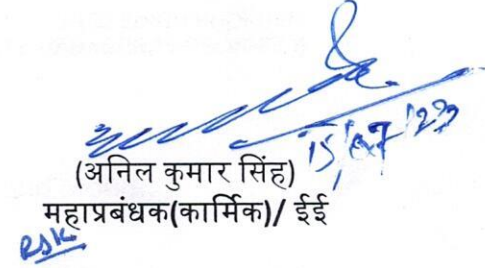 15/07/22
(अनिल कुमार सिंह)
महाप्रबंधक(कार्मिक)/ ईई
RSK